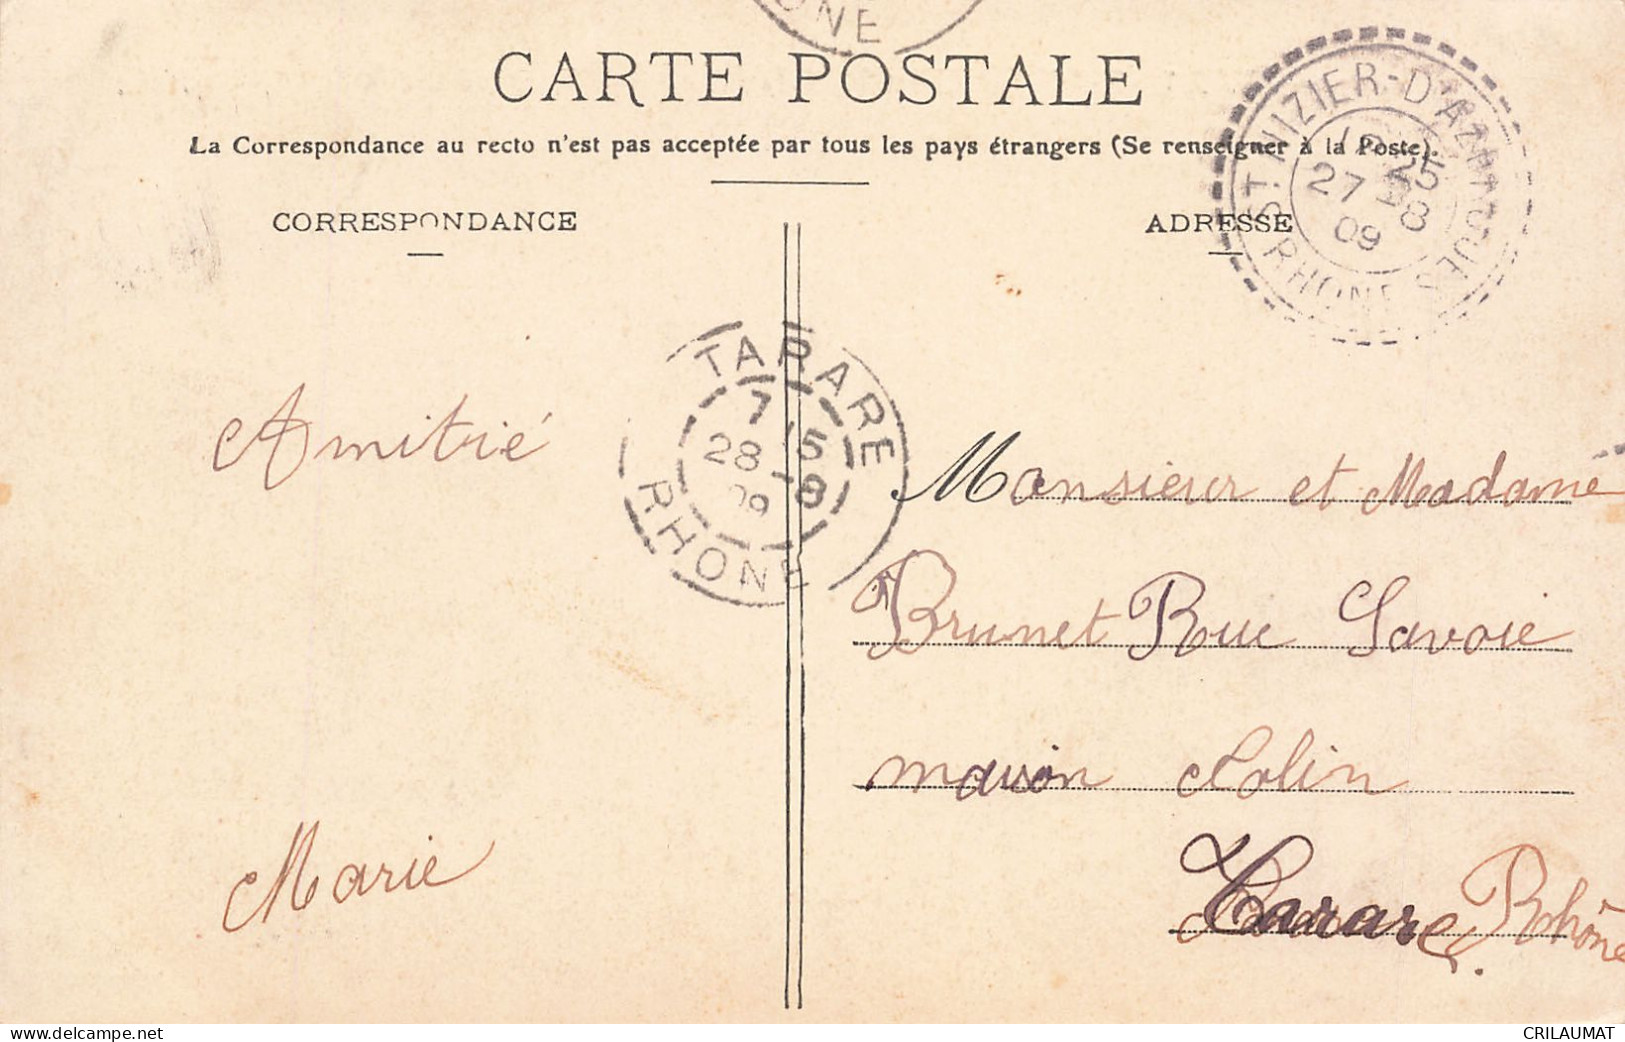 ONE
CARTE POSTALE
La Correspondance au recto n'est pas acceptée par tous les pays étrangers (Se renseigner à la Poste).
CORRESPONDANCE
ADRESSE
ST NIZIER-D'AZERGUES
27 8
09
RHONE
TARARE
7 15
28 -8
09
RHONE
Amitié
Marie
Monsieur et Madame
Brunet Rue Savoie
maison Colin
Tarare Rhône
www.delcampe.net
CRILAUMAT